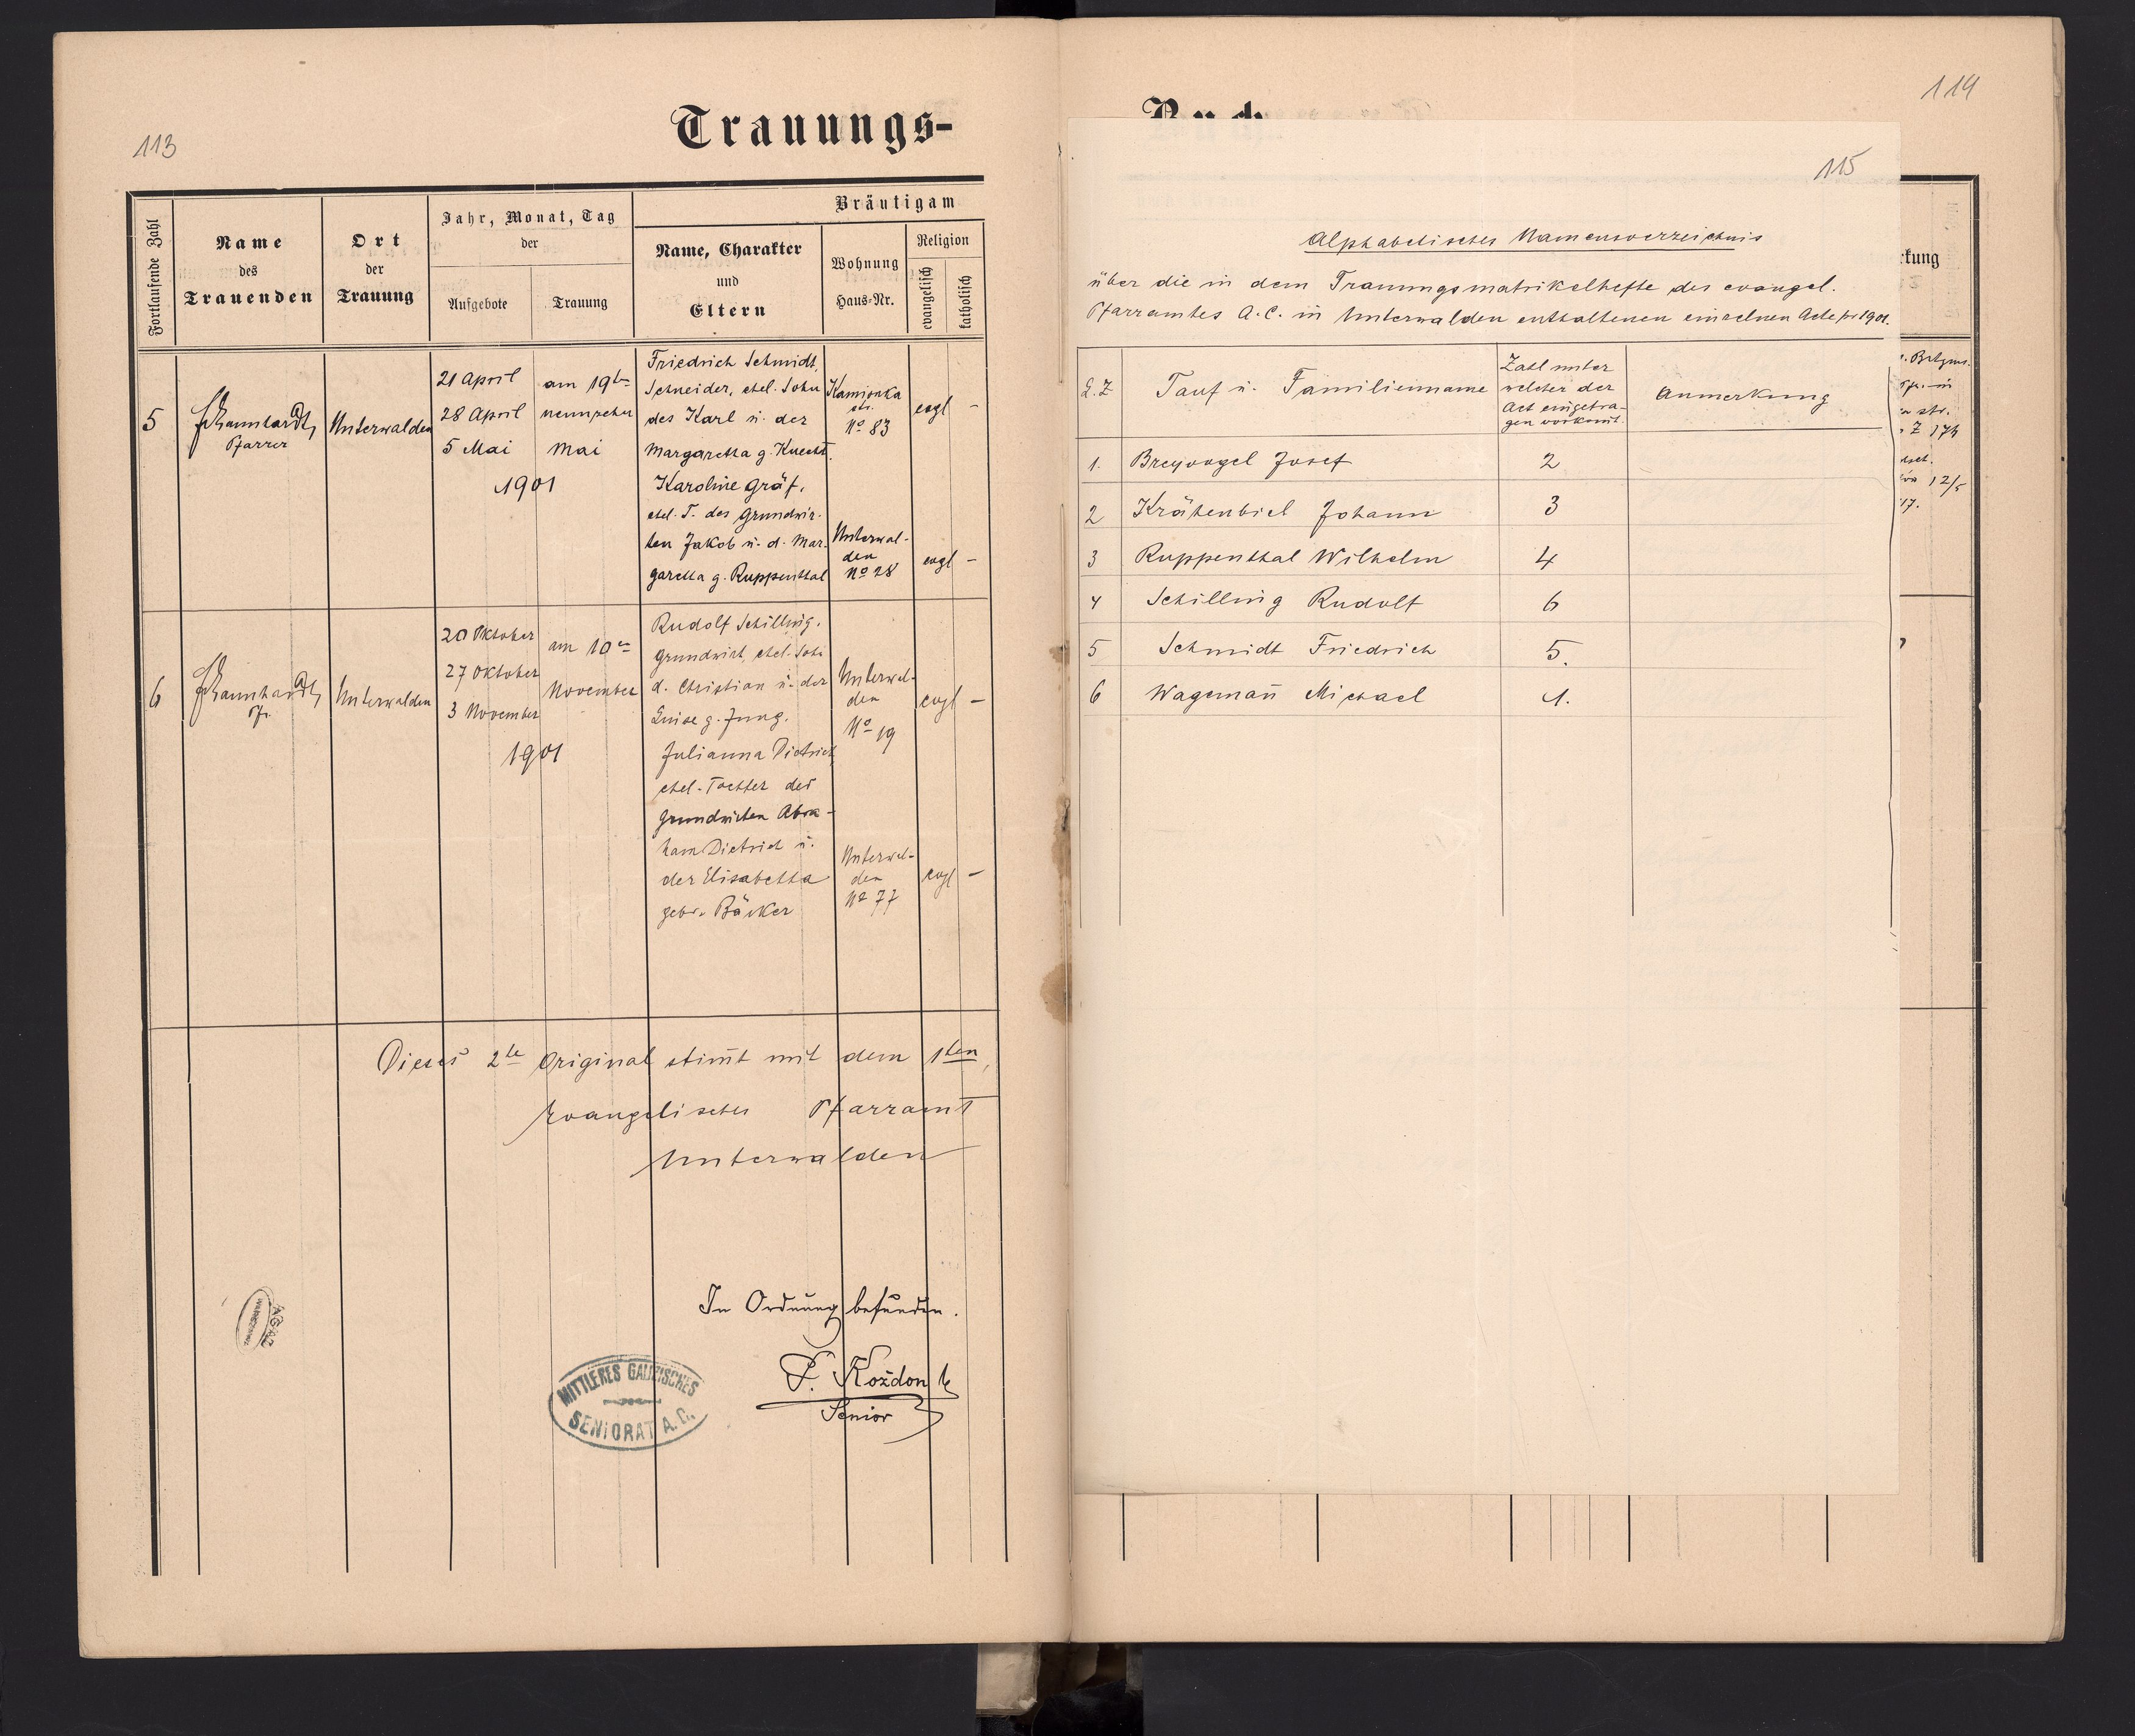 113
Trauungs-
Fortlaufende Zahl
Name
des
Trauenden
Ort
der
Trauung
Jahr, Monat, Tag
der
Aufgebote
Trauung
Bräutigam
Name, Charakter
und
Eltern
Wohnung
Haus-Nr.
Religion
evangelisch
katholisch
5
Pfarrer
Unterwalden
21 April
28 April
5 Mai
am 19te
neunzehn
Mai
1901
Friedrich Schmidt,
Schneider, ehel. Sohn
des Karl u. der
Margaretha g. Knecht.
Kamionka
str.
No 83
evgl -
Karoline Gräf,
ehel. T. des Grundwir-
ten Jakob u. d. Mar-
garetha g. Ruppenthal
Unterwal-
den
No 28
evgl -
6
Pfr.
Unterwalden
20 Oktober
27 Oktober
3 November
am 10en
November
1901
Rudolf Schilling,
Grundwirt, ehel. Sohn
d. Christian u. der
Luise g. Jung.
Unterwal-
den
No 19
evgl -
Julianna Dietrich,
ehel. Tochter des
Grundwirten Abra-
ham Dietrich u.
der Elisabetha
gebr. Bäcker
Unterwal-
den
No 77
evgl -
Dieses 2te Original stim̄t mit dem 1ten,
Evangelisches Pfarramt
Unterwalden
In Ordnung befunden.
Koždon
Senior
MITTLERES GALIZISCHES
SENIORAT A. C.
114
Buch
115
Alphabetisches Namensverzeichnis
über die in dem Trauungsmatrikelhefte des evangel.
Pfarramtes A. C. in Unterwalden enthaltenen einzelnen Acte pr 1901.
L. Z
Tauf u. Familienname
Zahl unter
welcher der
Act eingetra-
gen vorkom̄t.
Anmerkung
1. Breyvogel Josef 2
2 Krähenbiel Johann 3
3 Ruppenthal Wilhelm 4
4 Schilling Rudolf 6
5 Schmidt Friedrich 5.
6 Wageman̄ Michael 1.
kung
Pfr. in
str.
Z 174
12/5
17.